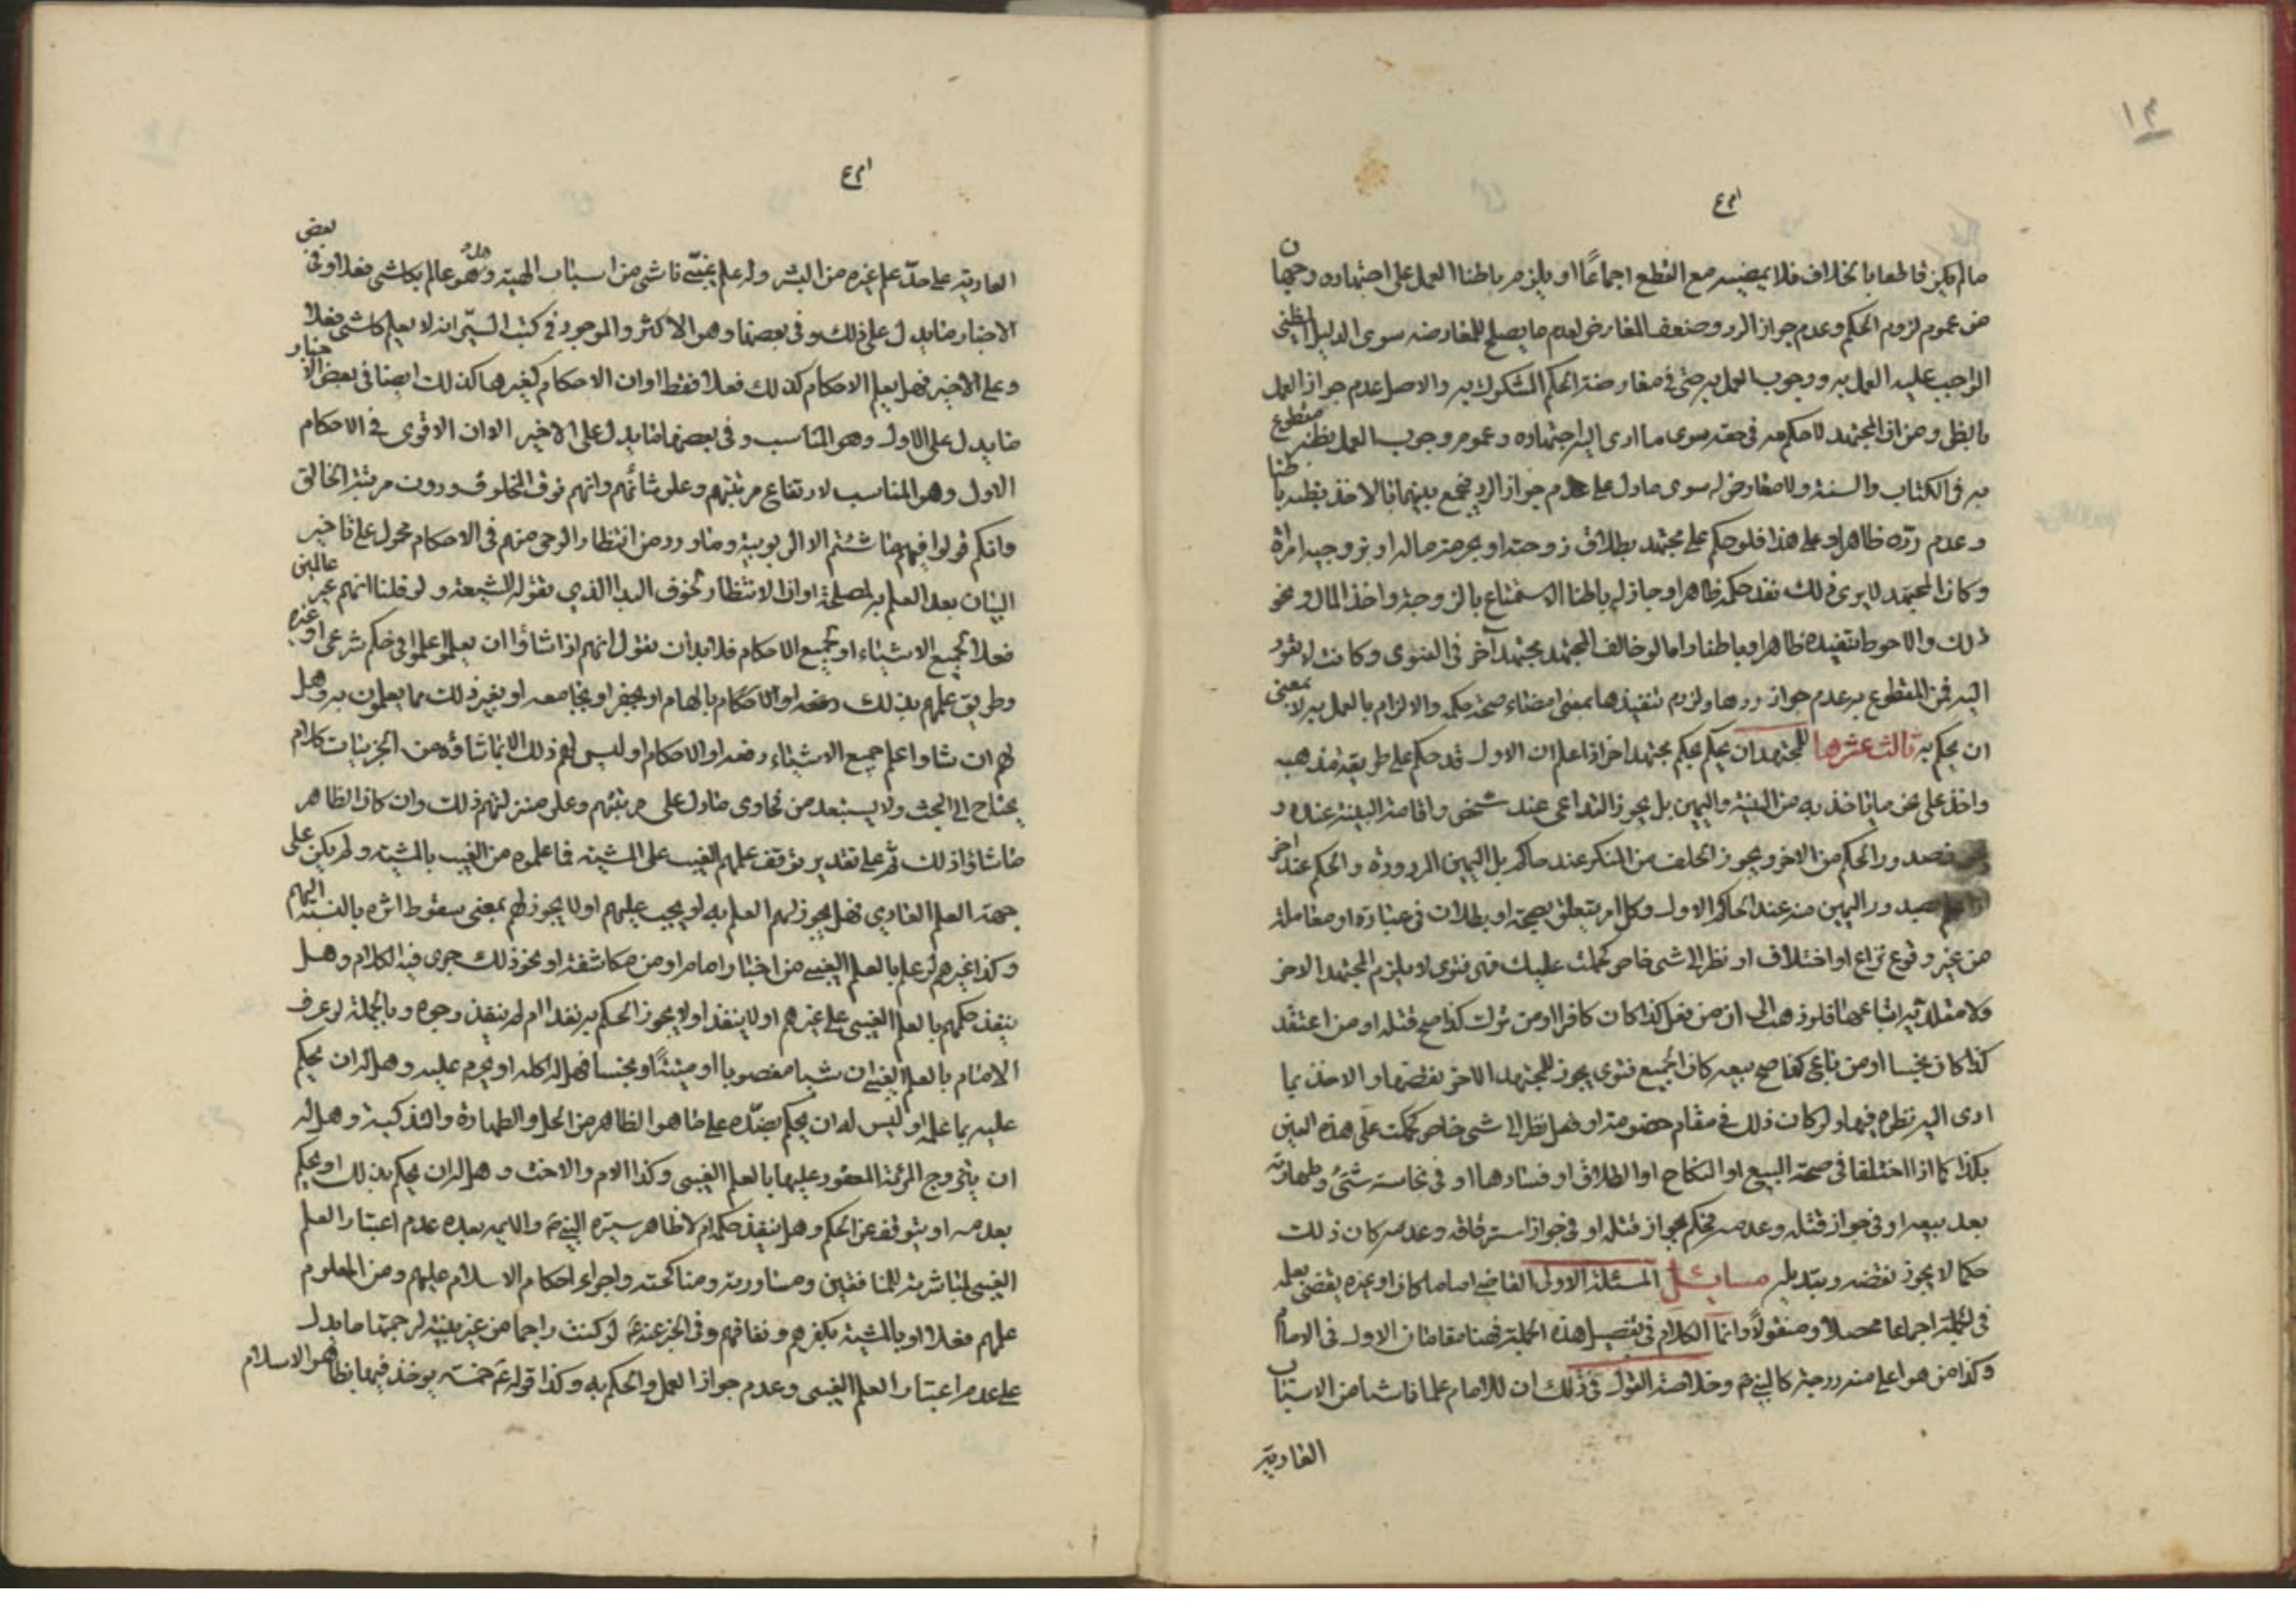 ١٣
مالم يكن قاطعا بالخلاف فلا يمضيه مع القطع اجماعًا او يلزمه باطنا العمل على اجتهاده وجهان
من عموم لزوم الحكم وعدم جواز الرد وضعف المعارض لعدم ما يصلح للمعارضه سوى الدليل الظني
الواجب عليه العمل به ووجوب العمل به حتى في معارضة الحكم المشكوك به والاصل عدم جواز العمل
بالظن ومن ان المجتهد لا حكم له في حقه سوى ما ادى اليه اجتهاده وعموم وجوب العمل بظنه مقطوع
به في الكتاب والسنة ولا معارض له سوى ما دل على عدم جواز الرد فيجمع بينهما بالاخذ بظنه باطنا
وعدم ردّه ظاهرا وعلى هذا فلو حكم على مجتهد بطلاق زوجته او بحرمة ماله او بتزويجه امراة
وكان المجتهد لا يرى ذلك نفذ حكمه ظاهرا وجاز له باطنا الاستمتاع بالزوجة واخذ المال ونحو
ذلك والاحوط تنفيذه ظاهرا وباطنا واما لو خالف المجتهد مجتهد آخر في الفتوى وكانت لا تعود
اليه فمن المقطوع به عدم جواز ردها ولزوم تنفيذها بمعنى امضاء صحة حكمه والالزام بالعمل به لا بمعنى
ان يحكم به ثالث عشرها للمجتهد ان يحكم بحكم مجتهد اخر اذا علم ان الاول قد حكم على طريقة مذهبه
واخذ على نحو ما ياخذ به من البينة واليمين بل يجوز التداعى عند شخص واقامة البينة عنده و
صدور الحكم من الاخر ويجوز الحلف من المنكر عند حاكم بل اليمين المردودة والحكم عند اخر
صدور اليمين منه عند الحاكم الاول وكل امر يتعلق بصحة او بطلان في عبادة او معاملة
من غير وقوع نزاع او اختلاف او نظر الى شى خاص كحكمت عليك فهى فتوى لا يلزم المجتهد الاخر
ولا مقلديه اتباعها فلو ذهب الى ان من فعل كذا كان كافرا او من ترك كذا صح قتله او من اعتقد
كذا كان نجسا او من باع كذا صح بيعه كان الجميع فتوى يجوز للمجتهد الاخر نقضها والاخذ بما
ادى اليه نظره فيها ولو كان ذلك في مقام خصومة او فصل نظر الى شى خاص كحكمت على هذه العين
بكذا كما اذا اختلفا في صحة البيع او النكاح او الطلاق او فسادها او في نجاسة شئ وطهارته
بعد بيعه او في جواز قتله وعدمه فحكم بجواز قتله او في جواز استرقاقه وعدمه كان ذلك
حكما لا يجوز نقضه وتبديله مسائل المسئلة الاولى القاضي اماما كان او غيره يقضى بعلمه
في الجملة اجماعا محصلا ومنقولًا وانما الكلام في تفصيل هذه الجملة فهنا مقامان الاول في الامام
وكذا من هو اعلى منه درجة كالنبي ص وخلاصة القول في ذلك ان للامام علما ناشئا من الاسباب
العادية
العادية على حدّ علم غيره من البشر وله علم غيبيّ ناشى من اسباب الهية وهل هو عالم بكل شى فعلا وفى بعض
الاخبار ما يدل على ذلك وفى بعضها وهو الاكثر والموجود في كتب السيّر انه لا يعلم كل شى فعلا
وعلى الاخير فهل يعلم الاحكام كذلك فعلا فقط او ان الاحكام كغيرها كذلك ايضا فى بعض الاخبار
ما يدل على الاول وهو المناسب وفى بعضها ما يدل على الاخير الا ان الاقوى في الاحكام
الاول وهو المناسب لارتفاع مرتبتهم وعلو شانهم وانهم فوق المخلوق ودون مرتبة الخالق
وانكم قولوا فيهم ما شئتم الا الربوبية وما ورد من انتظار الوحى منهم فى الاحكام محمول على تاخير
البيان بعد العلم به لمصلحة او ان الانتظار لخوف البدا الذي تقوله الشيعة ولو قلنا انهم غير عالمين
فعلا بجميع الاشياء او بجميع الاحكام فلا بد ان نقول انهم اذا شاؤا ان يعلموا علموا في حكم شرعى او غيره
وطريق علمهم بذلك دفعه او الاحكام بالهام او بجفر او بجامعه او بغير ذلك مما يعلمون به وهل
لهم ان شاوا علم جميع الاشياء دفعه او الاحكام او ليس لهم ذلك الا ما شاؤه من الجزئيات كلام
يحتاج الى البحث ولا يستبعد من فحاوى ما دل على مرتبتهم وعلو منزلتهم ذلك وان كان الظاهر
ما شاؤا ذلك ثم على تقدير توقف علمهم الغيب على المشية فما علموه من الغيب بالمشية ولم يكن على
جهة العلم العادي فهل يجوز لهم العلم به او يجب عليهم او لا يجوز لهم بمعنى سقوط اثره بالنسبة اليهم
وكذا غيرهم لو علم بالعلم الغيبي من اخبار امام او من مكاشفة او نحو ذلك جرى فيه الكلام وهل
ينفذ حكمهم بالعلم الغيبي على غيرهم او لا ينفذ او لا يجوز الحكم به نفذ ام لم ينفذ وجوه وبالجملة لو عرف
الامام بالعلم الغيبي ان شيا مغصوبا او ميتتًا او نجسا فهل له اكله او يحرم عليه وهل له ان يحكم
عليه بما علمه او ليس له ان يحكم بضدّه على ما هو الظاهر من الحل والطهارة والتذكية وهل له
ان يتزوج المرئة المعقود عليها بالعلم الغيبي وكذا الام والاخت وهل له ان يحكم بذلك او يحكم
بعدمه او يتوقف عن الحكم وهل ينفذ حكمه ام لا ظاهر سيرة النبي ص والائمه بعده عدم اعتبار العلم
الغيبى لمباشرته للمنافقين ومساورته ومناكحته واجراء احكام الاسلام عليهم ومن المعلوم
علمهم فعلا او بالمشية بكفرهم ونفاقهم وفى الخبر عنه ع لو كنت راجما من غير بينة لرجمتها ما يدل
على عدم اعتبار العلم الغيبى وعدم جواز العمل والحكم به وكذا قوله ع خمسة يوخذ فيها بظاهر الاسلام